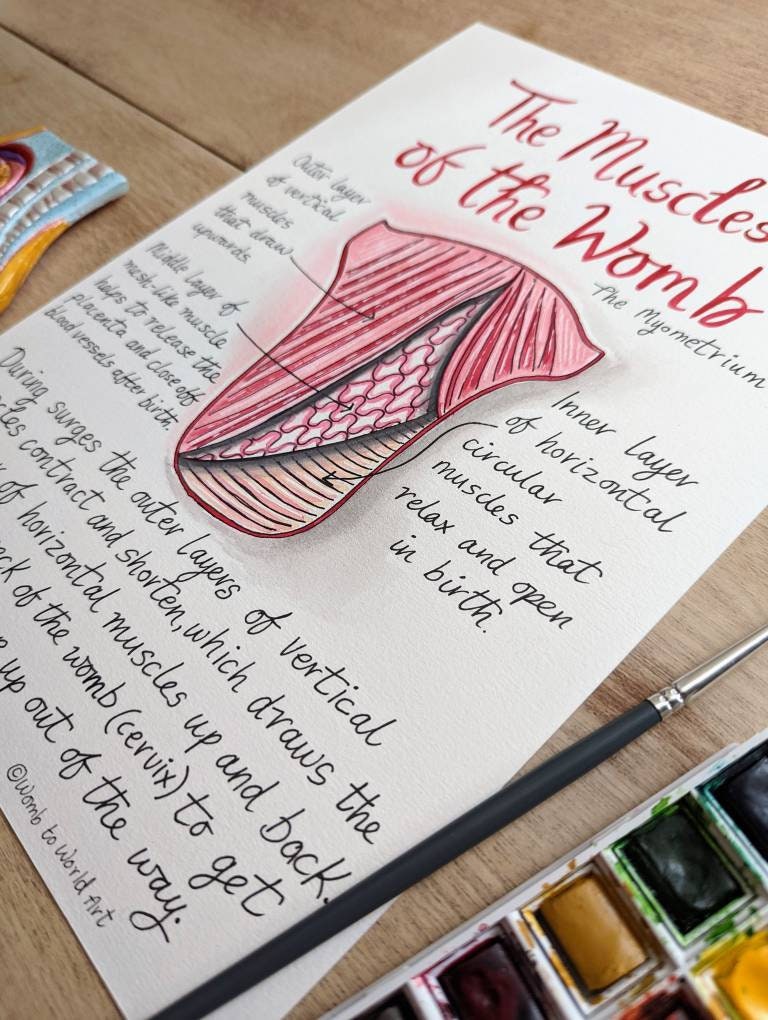 The Muscles
of the Womb
The Myometrium
Outer layer
of vertical
muscles
that draw
upwards.
Middle layer of
mesh-like muscle
helps to release the
placenta and close off
blood vessels after birth.
Inner layer
of horizontal
circular
muscles that
relax and open
in birth.
During surges the outer layers of vertical
contract and shorten, which draws the
of horizontal muscles up and back.
of the womb (cervix) to get
up out of the way.
©Womb to World Art